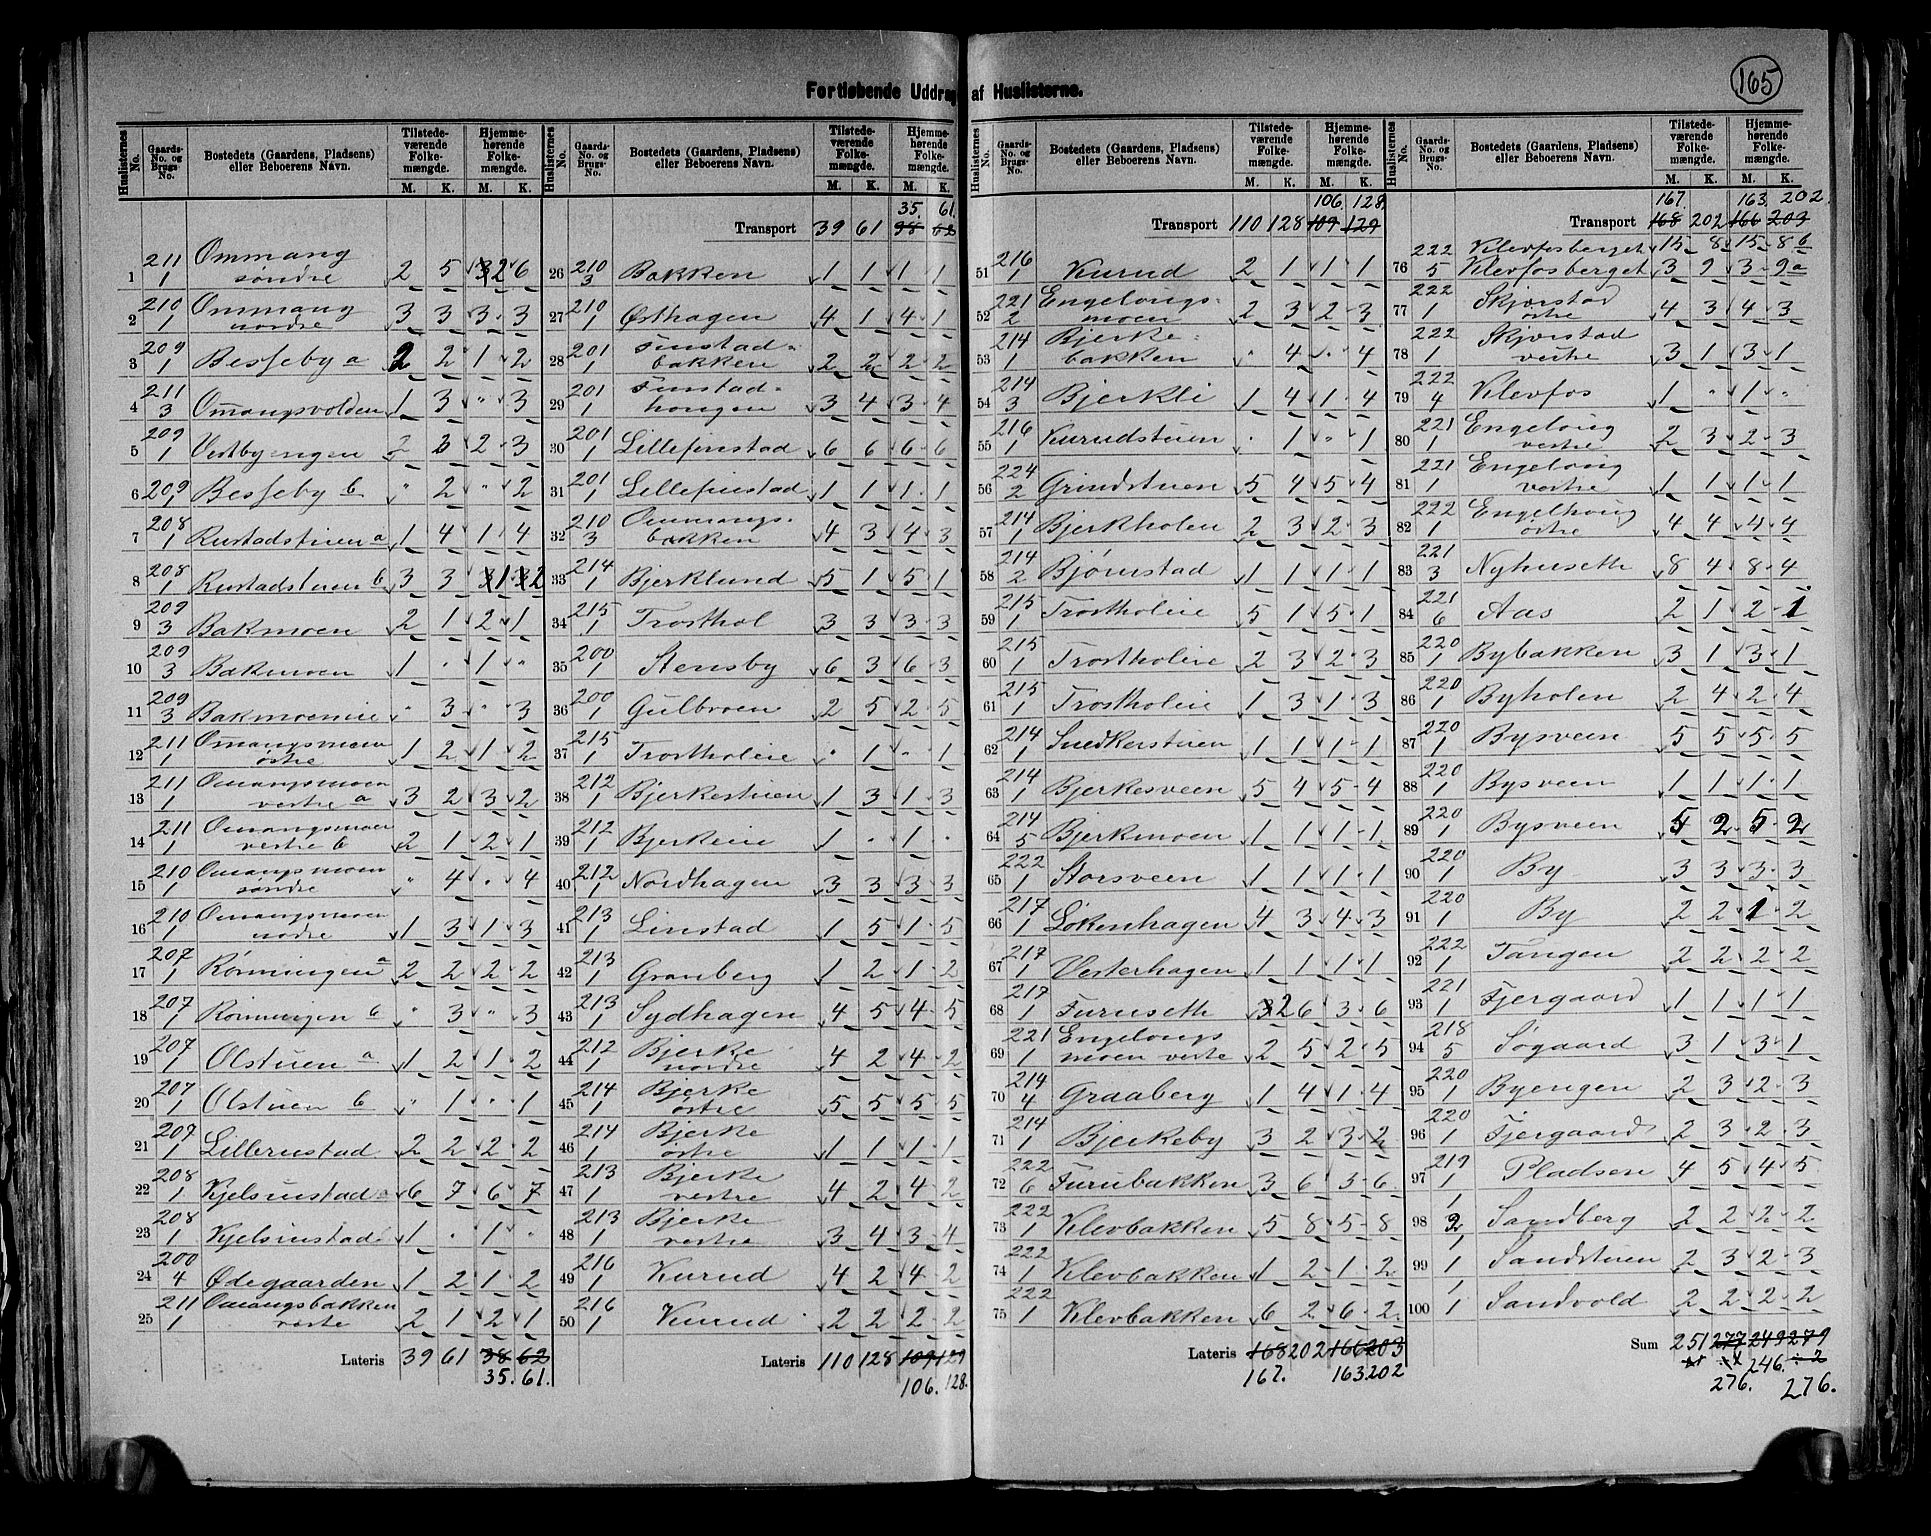 165
Fortløbende Uddrag af Huslisterne.
Huslisternes No. Gaards-No. og Brugs-No. Bostedets (Gaardens, Pladsens) eller Beboerens Navn. Tilstede-værende Folke-mængde. M. K. Hjemme-hørende Folke-mængde. M. K.
1 211 1 Ommang søndre 2 5 2 6
2 210 1 Ommang nordre 3 3 3 3
3 209 1 Besseby a 2 2 1 2
4 211 3 Omangsvolden 1 3 " 3
5 209 1 Vestbyengen 2 3 2 3
6 209 1 Besseby b " 2 " 2
7 208 1 Rustadstuen a 1 4 1 4
8 208 1 Rustadstuen b 3 3 1 2
9 209 3 Bakmoen 2 1 2 1
10 209 3 Bakmoen 1 " 1 "
11 209 3 Bakmoeneie " 3 " 3
12 211 1 Omangsmoen østre 1 2 1 2
13 211 1 Omangsmoen vestre a 3 2 3 2
14 211 1 Omangsmoen vestre b 2 1 2 1
15 210 1 Omangsmoen søndre " 4 " 4
16 210 1 Omangsmoen nordre 1 3 1 3
17 207 1 Rønningen a 2 2 2 2
18 207 1 Rønningen b " 3 " 3
19 207 1 Olstuen a 1 2 1 2
20 207 1 Olstuen b " 1 " 1
21 207 1 Lillerustad 2 2 2 2
22 208 1 Kjelsrustad a 6 7 6 7
23 208 1 Kjelsrustad 1 " 1 "
24 200 4 Ødegaarden 1 2 1 2
25 211 1 Omangsbakken vestre 2 1 2 1
Lateris 39 61 38 62
35. 61.
Huslisternes No. Gaards-No. og Brugs-No. Bostedets (Gaardens, Pladsens) eller Beboerens Navn. Tilstede-værende Folke-mængde. M. K. Hjemme-hørende Folke-mængde. M. K.
35. 61.
Transport 39 61 38 62
26 210 3 Bakken 1 1 1 1
27 210 1 Østhagen 4 1 4 1
28 201 1 Finstad-bakken 2 2 2 2
29 201 1 Finstad-haugen 3 4 3 4
30 201 1 Lillefinstad 6 6 6 6
31 201 1 Lillefinstad 1 1 1 1
32 210 3 Ommangs-bakken 4 3 4 3
33 214 1 Bjerklund 5 1 5 1
34 215 1 Trosthol 3 3 3 3
35 200 1 Stensby 6 3 6 3
36 200 1 Gulbroen 2 5 2 5
37 215 1 Trostholeie " 1 " 1
38 212 1 Bjerkestuen 1 3 1 3
39 212 1 Bjerkeie 1 " 1 "
40 212 1 Nordhagen 3 3 3 3
41 213 1 Linstad 1 5 1 5
42 213 1 Granberg 1 2 1 2
43 213 1 Sydhagen 4 5 4 5
44 212 1 Bjerke nordre 4 2 4 2
45 214 1 Bjerke østre 5 5 5 5
46 214 1 Bjerke østre 1 1 1 1
47 213 1 Bjerke vestre 4 2 4 2
48 213 1 Bjerke vestre 3 4 3 4
49 216 1 Kurud 4 2 4 2
50 216 1 Kurud 2 2 2 2
Lateris 110 128 109 129
106. 128.
Huslisternes No. Gaards-No. og Brugs-No. Bostedets (Gaardens, Pladsens) eller Beboerens Navn. Tilstede-værende Folke-mængde. M. K. Hjemme-hørende Folke-mængde. M. K.
106. 128.
Transport 110 128 109 129
51 216 1 Kurud 2 1 1 1
52 221 2 Engelougs-moen 2 3 2 3
53 214 1 Bjerke-bakken " 4 " 4
54 214 3 Bjerkli 1 4 1 4
55 216 1 Kurudstuen " 1 " 1
56 224 2 Grindstuen 5 4 5 4
57 214 1 Bjerkholen 2 3 2 3
58 214 2 Bjørnstad 1 1 1 1
59 215 1 Trostholeie 5 1 5 1
60 215 1 Trostholeie 2 3 2 3
61 215 1 Trostholeie 1 3 1 3
62 214 1 Snedkerstuen 1 1 1 1
63 214 1 Bjerkesveen 5 4 5 4
64 214 5 Bjerkmoen 1 1 1 1
65 222 1 Storsveen 1 1 1 1
66 217 1 Løkenhagen 4 3 4 3
67 217 1 Vesterhagen 1 1 1 1
68 217 1 Furusett 2 6 3 6
69 221 1 Engelougs moen vestre 2 5 2 5
70 214 4 Graaberg 1 4 1 4
71 214 1 Bjerkeby 3 2 3 2
72 222 6 Furubakken 3 6 3 6
73 222 1 Klevbakken 5 8 5 8
74 222 1 Klevbakken 1 2 1 2
75 222 1 Klevbakken 6 2 6 2
Lateris 168 202 166 203
167. 163. 202
Huslisternes No. Gaards-No. og Brugs-No. Bostedets (Gaardens, Pladsens) eller Beboerens Navn. Tilstede-værende Folke-mængde. M. K. Hjemme-hørende Folke-mængde. M. K.
167. 163. 202.
Transport 168 202 166 203
Klevfosberget 15 8 15 8 b
76 222 5 Klevfosberget 3 9 3 9 a
77 222 1 Skjørstad østre 4 3 4 3
78 222 1 Skjørstad vestre 3 1 3 1
79 222 4 Klevfos 1 " 1 "
80 221 1 Engeloug vestre 2 3 2 3
81 221 1 Engeloug vestre 1 1 1 1
82 222 1 Engelhoug østre 4 4 4 4
83 221 3 Nyhusett 8 4 8 4
84 221 6 Aas 2 1 2 1
85 220 1 Bybakken 3 1 3 1
86 220 1 Byholen 2 4 2 4
87 220 1 Bysveen 5 5 5 5
88 220 1 Bysveen 1 1 1 1
89 220 1 Bysveen 5 2 5 2
90 220 1 By 3 3 3 3
91 220 1 By 2 2 1 2
92 222 1 Tangen 2 2 2 2
93 221 1 Fjergaard 1 1 1 1
94 218 5 Søgaard 3 1 3 1
95 220 1 Byengen 2 3 2 3
96 220 1 Fjergaard 2 3 2 3
97 219 1 Pladsen 4 5 4 5
98 1 2 Sandberg 2 2 2 2
99 1 1 Sandstuen 2 3 2 3
100 1 1 Sandvold 2 2 2 2
Sum 251 277 249 279
246. ÷2
276. 276.